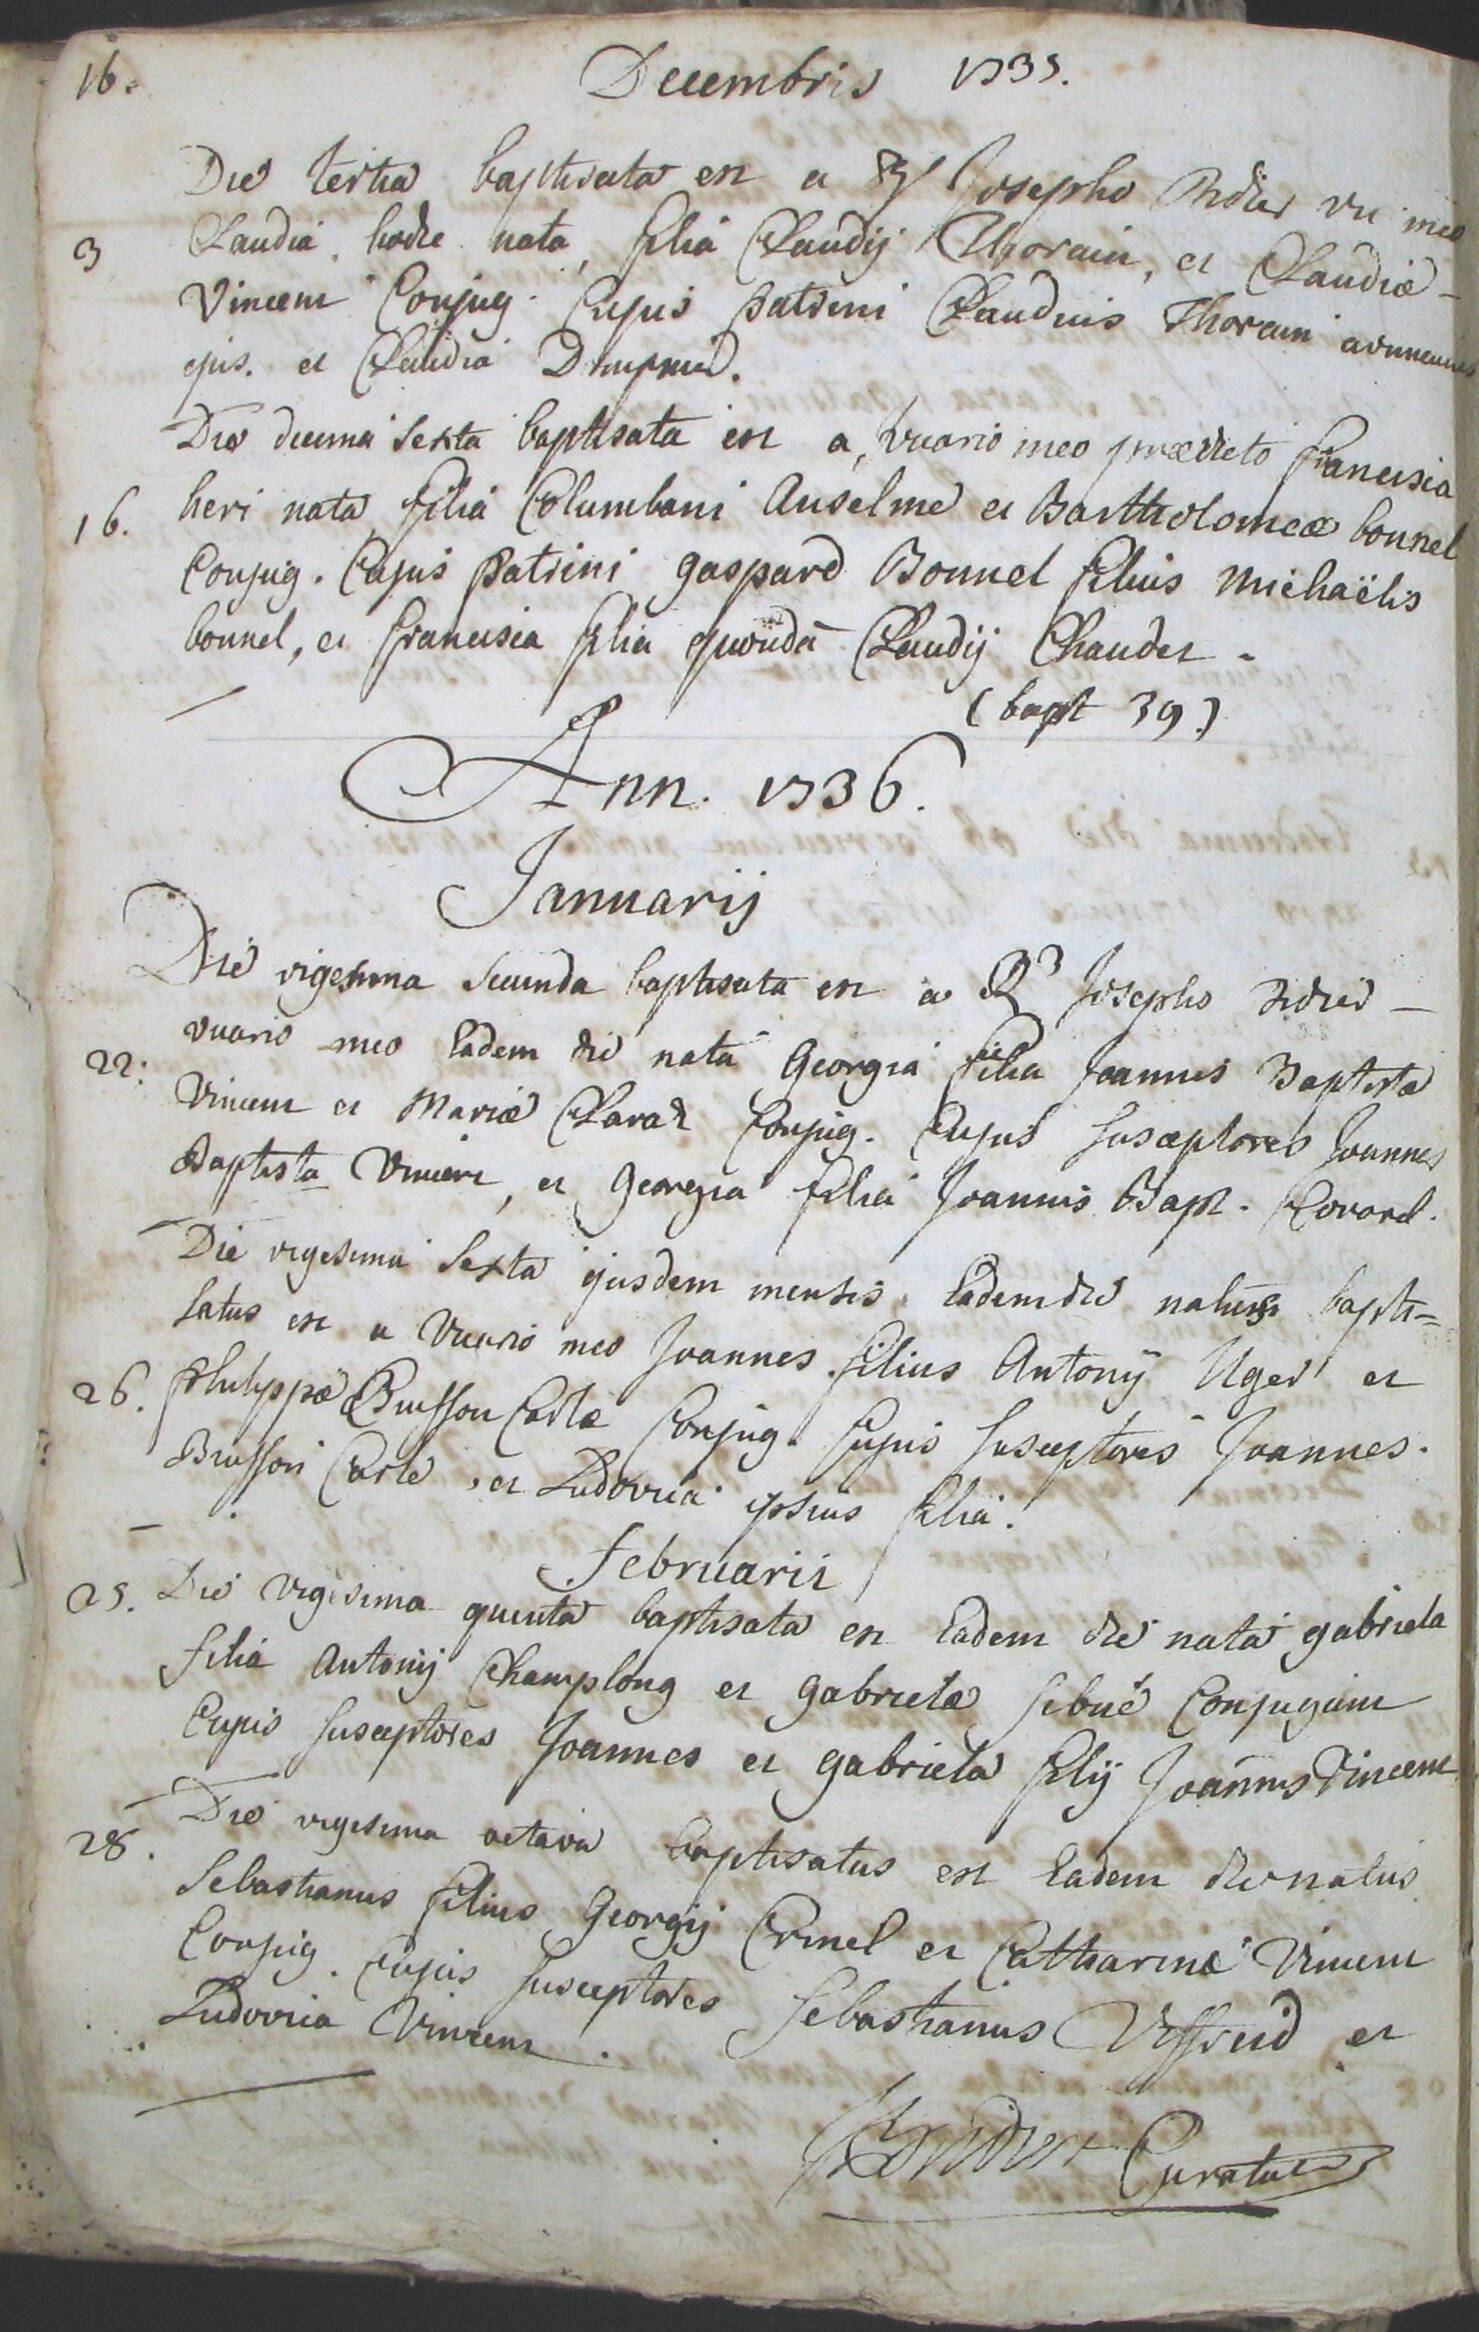 16.
Decembris 1735.
Die tertia baptisata est a Rdo Josepho Didier vic. meo
3 Claudia, hodie nata, filia Claudij Thorain, et Claudiæ
Vincent Conjug. Cujus patrini Claudius Thorain avunculus
ejus. et Claudia
Die decima sexta baptisata est a vicario meo prædicto francisia
16. heri nata filia Columbani Anselme et Bartholomeæ bonnel
Conjug. Cujus Patrini gaspard Bonnel filius Michaëlis
bonnel, et francisia filia quondã Claudij Chaudet.
(bapt 39.)
Ann. 1736.
Januarij
Die vigesima secunda baptisata est a Rdo Josepho Didier
vicario meo Eadem die nata Georgia filia Joannis Baptistæ
22. Vincent et Mariæ Claraz Conjug. Cujus susceptores Joannes
Baptista Vincent, et Georgia filia Joannis Bapt. Covarel.
Die vigesima sexta ejusdem mensis. Eadem die natus bapti=
satus est a Vicario meo Joannes filius Antonij Uget et
26. philippæ Buisson Carle Conjug. Cujus susceptores Joannes.
Buisson Carle, et Ludovica ipsius filia.
Februarii
25. Die vigesima quinta baptisata est Eadem die nata gabriela
filia Antonij Champlong et gabrielæ sebué Conjugum
Cujus susceptores Joannes et gabriela filij Joannis Vincent
28. Die vigesima octava baptisatus est Eadem die natus
Sebastianus filius Georgij Ermel et Catharinæ Vincent
Conjug. Cujus susceptores Sebastianus Viffred et
Ludovica Vincent.
Curatus